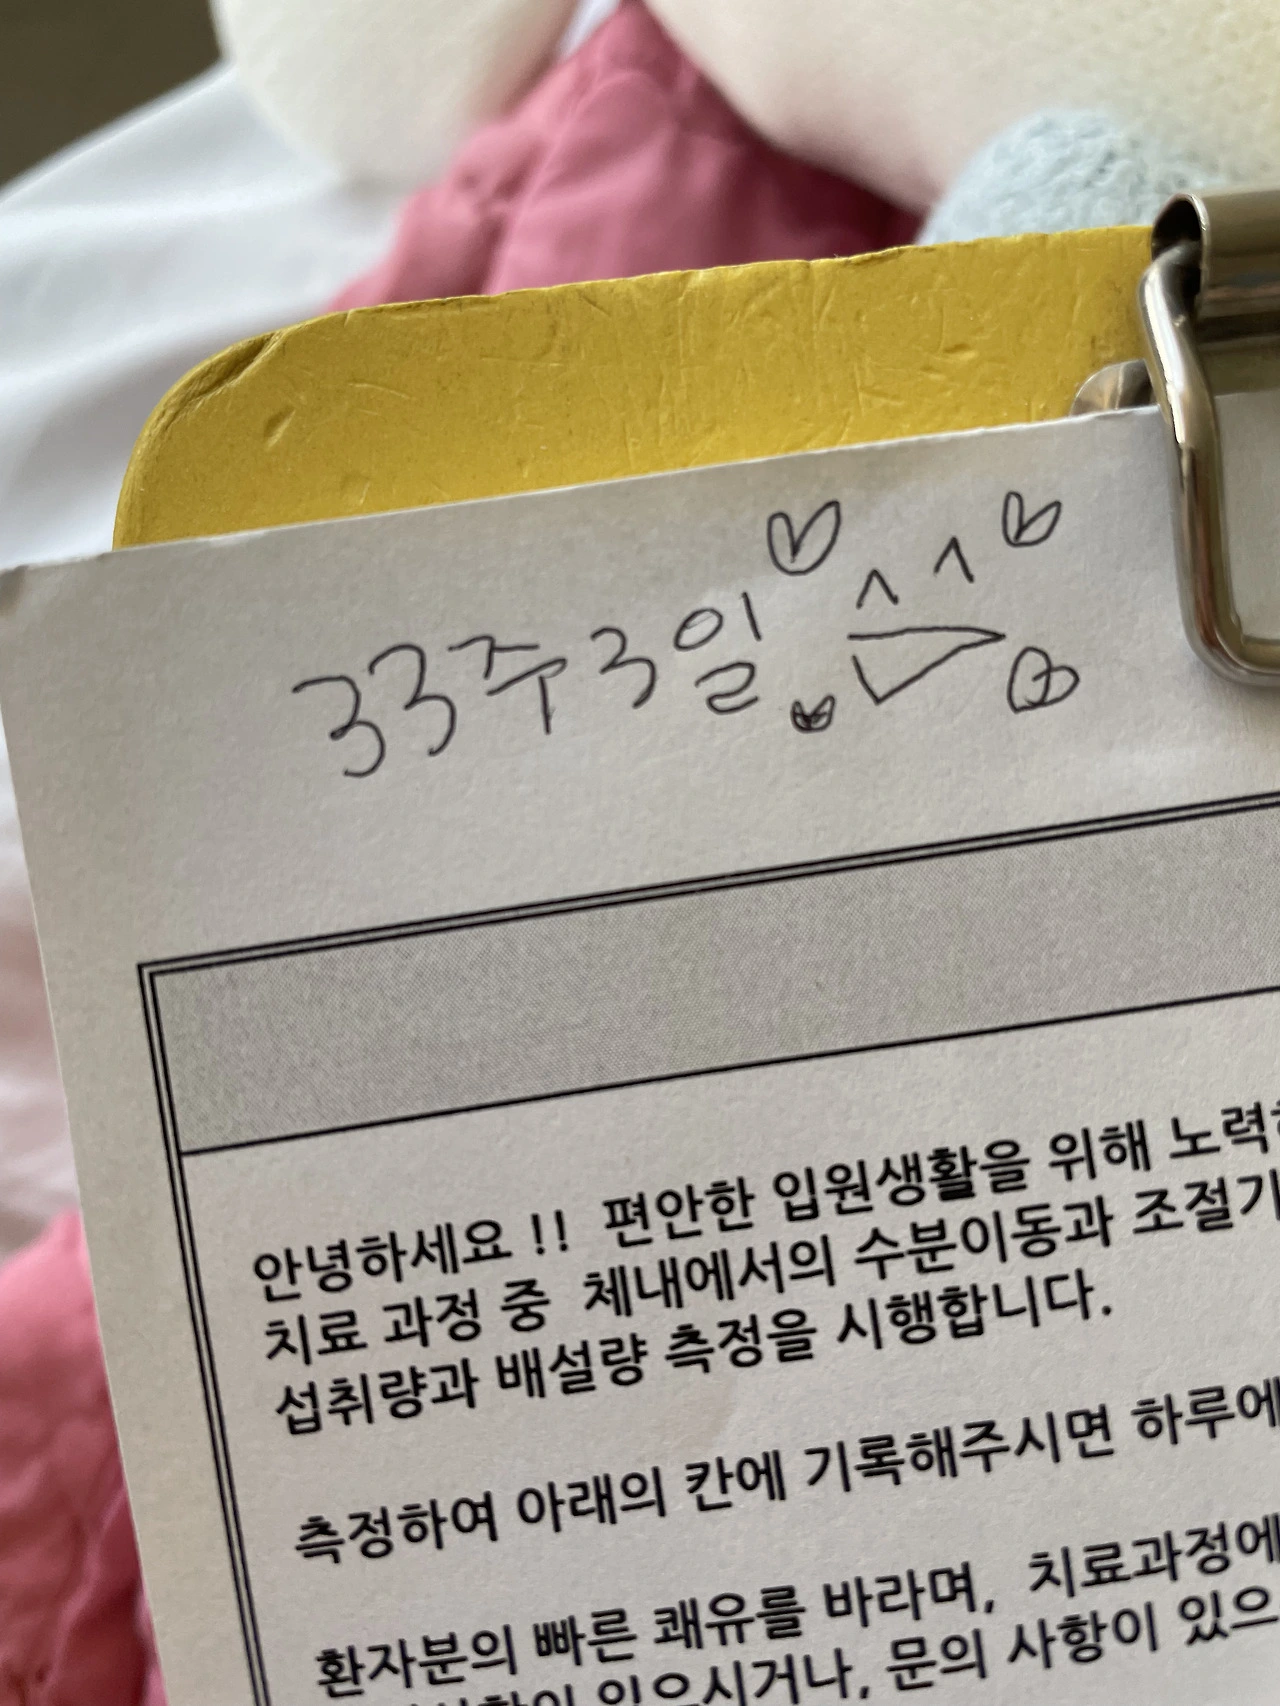 33주 3일 ♡ ^ ^ ♡
안녕하세요 !! 편안한 입원생활을 위해 노력
치료 과정 중 체내에서의 수분이동과 조절기
섭취량과 배설량 측정을 시행합니다.
측정하여 아래의 칸에 기록해주시면 하루에
환자분의 빠른 쾌유를 바라며, 치료과정에
있으시거나, 문의 사항이 있으